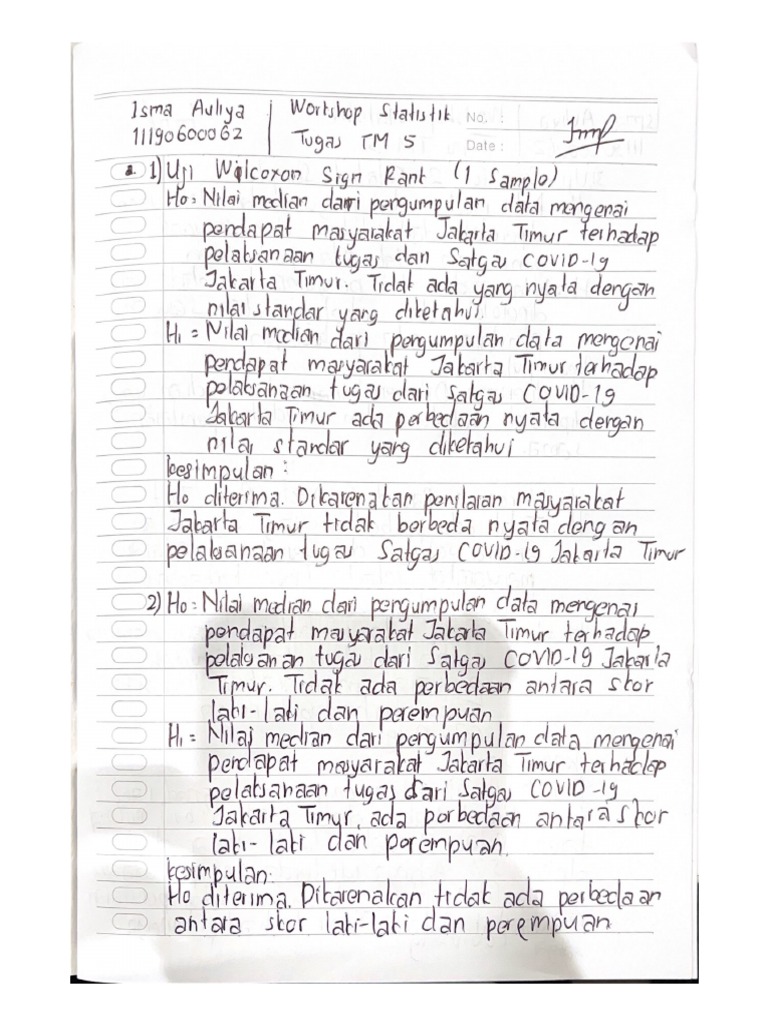 Isma Auliya
11190600062
Workshop Statistik
Tugas TM 5
No. :
Date :
2. 1) Uji Wilcoxon Sign Rank (1 Sample)
Ho = Nilai median dari pergumpulan data mengenai
pendapat masyarakat Jakarta Timur terhadap
pelaksanaan tugas dan Satgas COVID-19
Jakarta Timur. Tidak ada yang nyata dengan
nilai standar yang diketahui.
H1 = Nilai median dari pergumpulan data mengenai
pendapat masyarakat Jakarta Timur terhadap
pelaksanaan tugas dari Satgas COVID-19
Jakarta Timur ada perbedaan nyata dengan
nilai standar yang diketahui
kesimpulan :
Ho diterima. Dikarenakan penilaian masyarakat
Jakarta Timur tidak berbeda nyata dengan
pelaksanaan tugas Satgas COVID-19 Jakarta Timur
2) Ho = Nilai median dari pergumpulan data mengenai
pendapat masyarakat Jakarta Timur terhadap
pelaksanaan tugas dari Satgas COVID-19 Jakarta
Timur. Tidak ada perbedaan antara skor
laki-laki dan perempuan
H1 = Nilai median dari pergumpulan data mengenai
pendapat masyarakat Jakarta Timur terhadap
pelaksanaan tugas dari Satgas COVID-19
Jakarta Timur, ada perbedaan antara skor
laki-laki dan perempuan.
kesimpulan:
Ho diterima. Dikarenakan tidak ada perbedaan
antara skor laki-laki dan perempuan